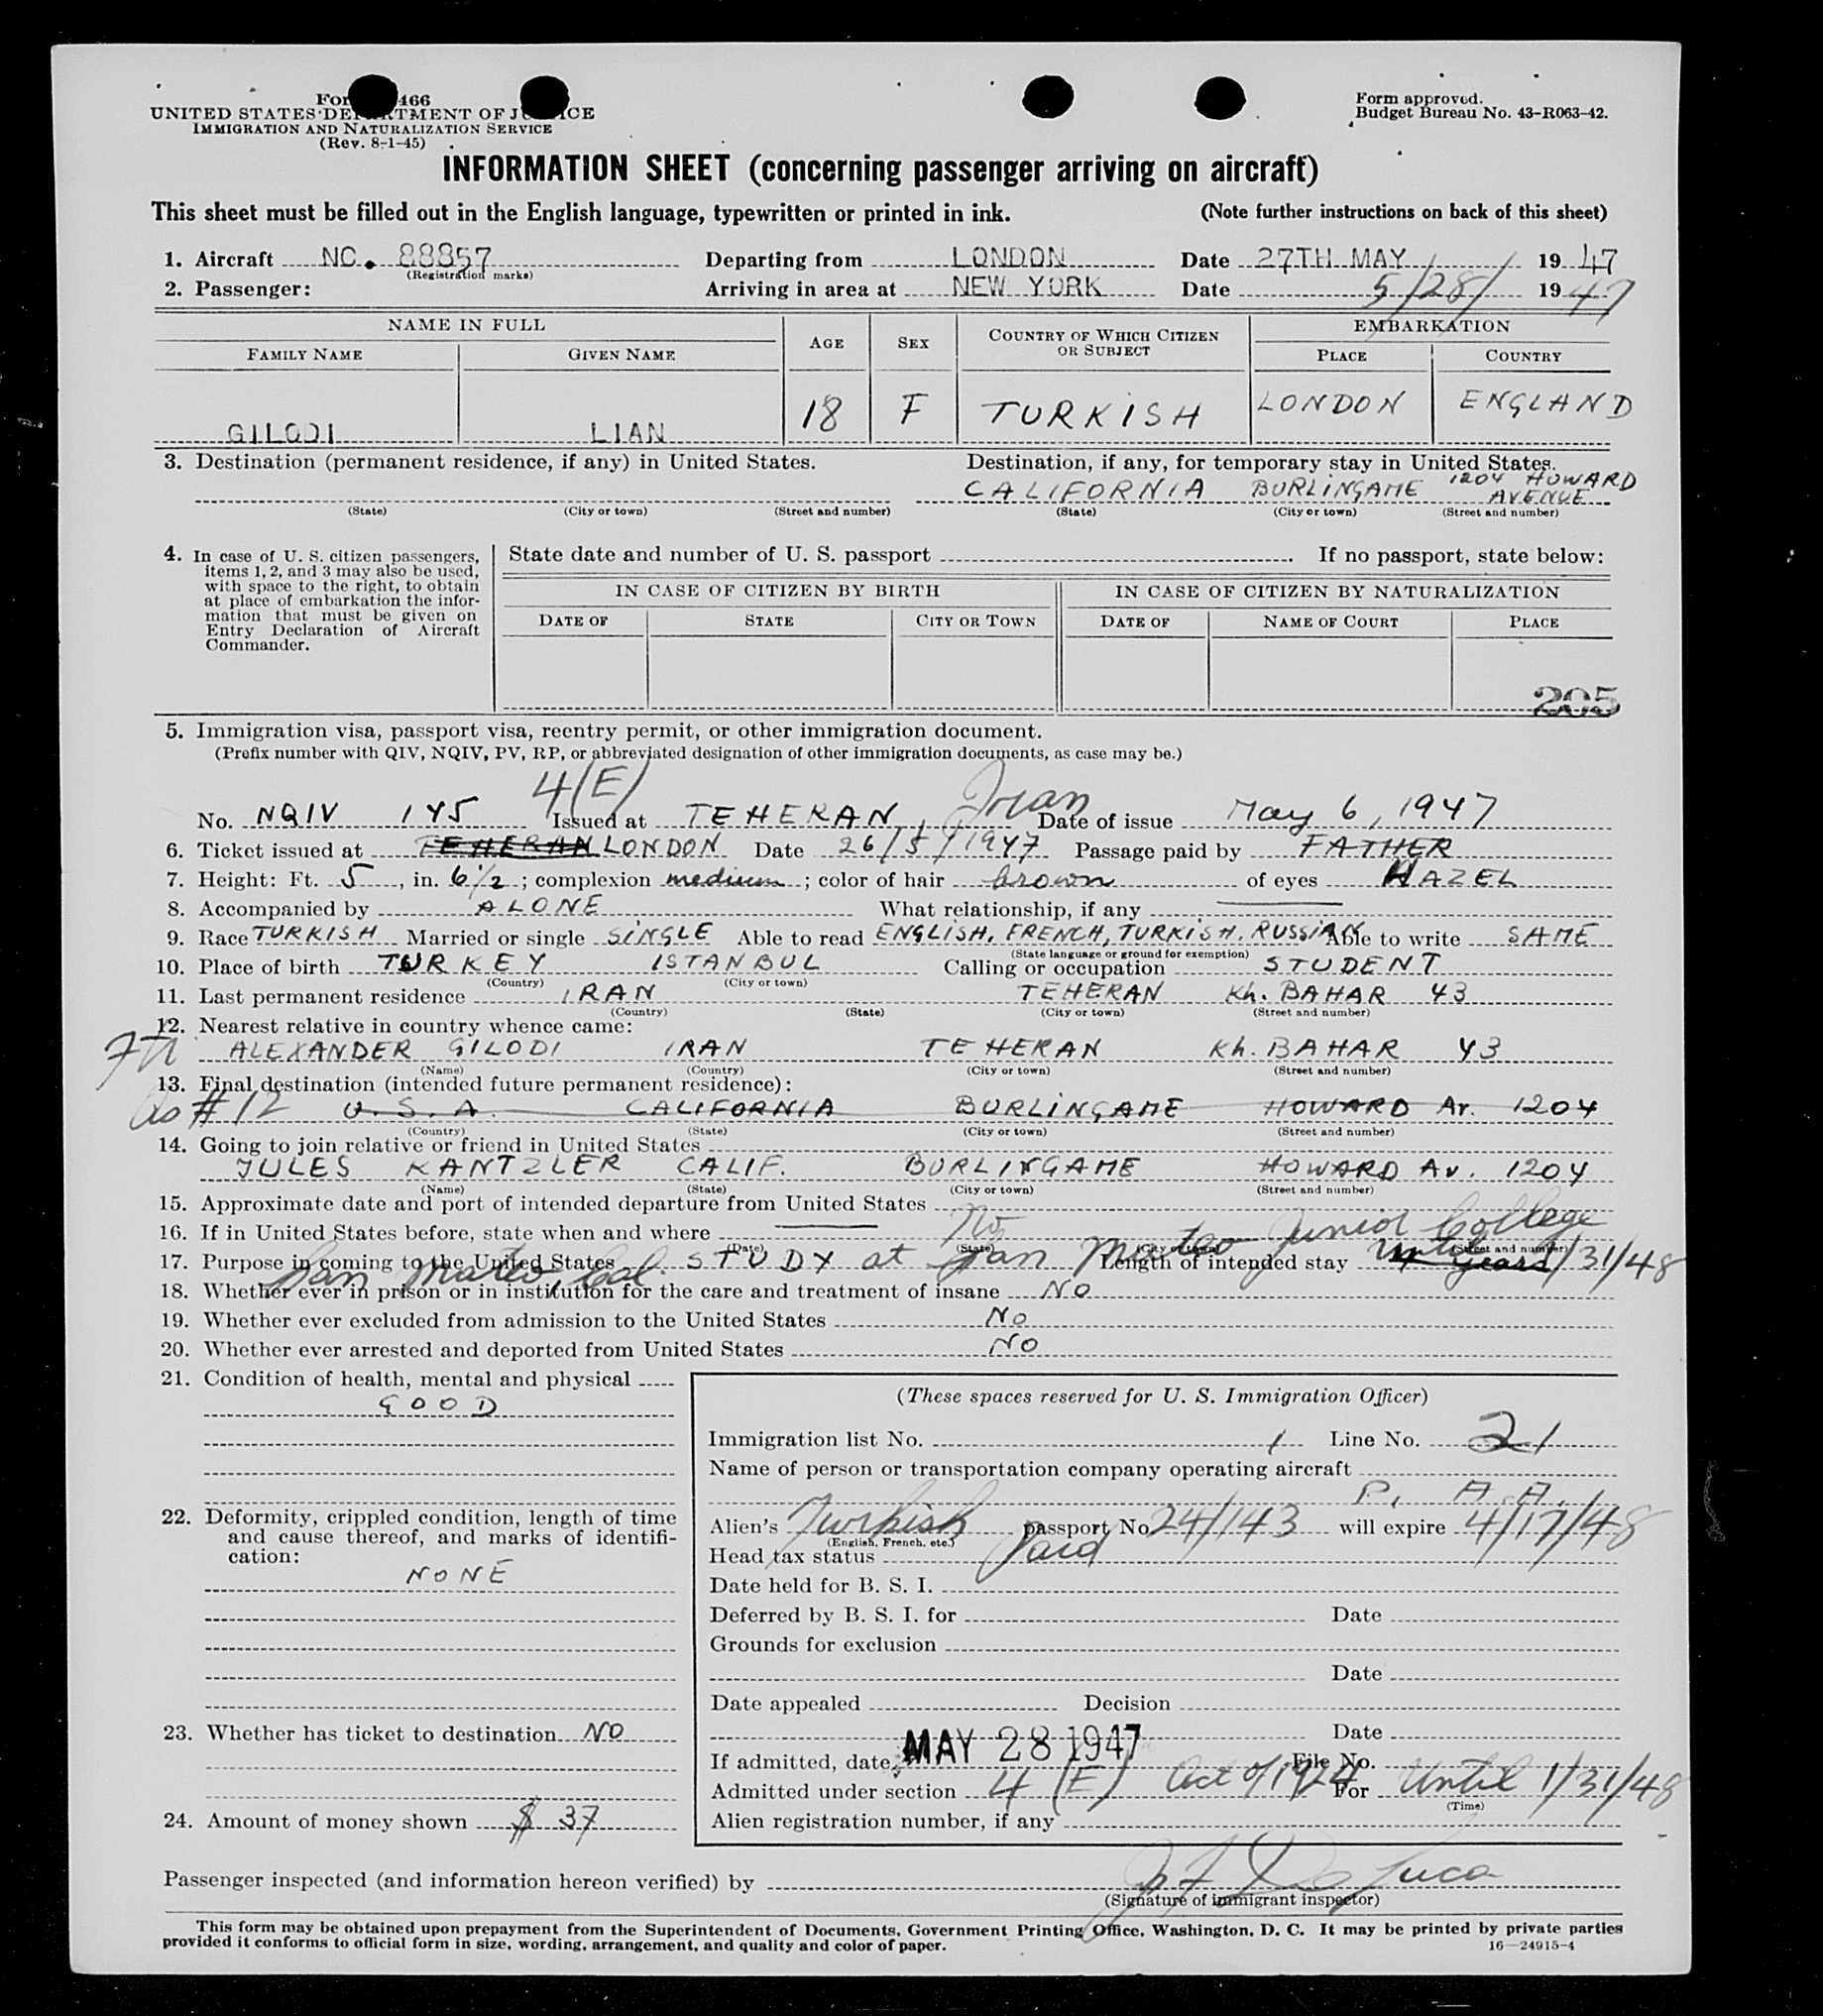 Form 466
UNITED STATES DEPARTMENT OF JUSTICE
IMMIGRATION AND NATURALIZATION SERVICE
(Rev. 8-1-45)
Form approved.
Budget Bureau No. 43-R063-42.
INFORMATION SHEET (concerning passenger arriving on aircraft)
This sheet must be filled out in the English language, typewritten or printed in ink. (Note further instructions on back of this sheet)
1. Aircraft NC. 88857 Departing from LONDON Date 27TH MAY 1947
(Registration marks)
2. Passenger: Arriving in area at NEW YORK Date 5/28/ 1947
NAME IN FULL AGE SEX COUNTRY OF WHICH CITIZEN OR SUBJECT EMBARKATION
FAMILY NAME GIVEN NAME PLACE COUNTRY
GILODI LIAN 18 F TURKISH LONDON ENGLAND
3. Destination (permanent residence, if any) in United States. Destination, if any, for temporary stay in United States.
CALIFORNIA BURLINGAME 1204 HOWARD AVENUE
(State) (City or town) (Street and number) (State) (City or town) (Street and number)
4. In case of U. S. citizen passengers,
items 1, 2, and 3 may also be used,
with space to the right, to obtain
at place of embarkation the infor-
mation that must be given on
Entry Declaration of Aircraft
Commander.
State date and number of U. S. passport If no passport, state below:
IN CASE OF CITIZEN BY BIRTH IN CASE OF CITIZEN BY NATURALIZATION
DATE OF STATE CITY OR TOWN DATE OF NAME OF COURT PLACE
205
5. Immigration visa, passport visa, reentry permit, or other immigration document.
(Prefix number with QIV, NQIV, PV, RP, or abbreviated designation of other immigration documents, as case may be.)
4(E)
No. NQIV 145 Issued at TEHERAN, Iran Date of issue May 6, 1947
6. Ticket issued at TEHERAN LONDON Date 26/5/1947 Passage paid by FATHER
7. Height: Ft. 5, in. 6 1/2; complexion medium; color of hair brown of eyes HAZEL
8. Accompanied by ALONE What relationship, if any
9. Race TURKISH Married or single SINGLE Able to read ENGLISH, FRENCH, TURKISH, RUSSIAN Able to write SAME
(State language or ground for exemption)
10. Place of birth TURKEY ISTANBUL Calling or occupation STUDENT
(Country) (City or town)
11. Last permanent residence IRAN TEHERAN Kh. BAHAR 43
(Country) (State) (City or town) (Street and number)
12. Nearest relative in country whence came:
ALEXANDER GILODI IRAN TEHERAN Kh. BAHAR 43
(Name) (Country) (City or town) (Street and number)
13. Final destination (intended future permanent residence):
As #12 U. S. A. CALIFORNIA BURLINGAME HOWARD Av. 1204
(Country) (State) (City or town) (Street and number)
14. Going to join relative or friend in United States
JULES KANTZLER CALIF. BURLINGAME HOWARD Av. 1204
(Name) (State) (City or town) (Street and number)
15. Approximate date and port of intended departure from United States
16. If in United States before, state when and where No
(Date) (State) (City or town) (Street and number)
17. Purpose in coming to the United States STUDY at San Mateo Junior College Length of intended stay 4 years Until 1/31/48
San Mateo, Cal.
18. Whether ever in prison or in institution for the care and treatment of insane NO
19. Whether ever excluded from admission to the United States NO
20. Whether ever arrested and deported from United States NO
21. Condition of health, mental and physical
GOOD
22. Deformity, crippled condition, length of time
and cause thereof, and marks of identifi-
cation:
NONE
23. Whether has ticket to destination NO
24. Amount of money shown $ 37
(These spaces reserved for U. S. Immigration Officer)
Immigration list No. 1 Line No. 21
Name of person or transportation company operating aircraft
P. A. A.
Alien's Turkish passport No 24/143 will expire 4/17/48
(English, French, etc.)
Head tax status Paid
Date held for B. S. I.
Deferred by B. S. I. for Date
Grounds for exclusion
Date
Date appealed Decision
Date
If admitted, date MAY 28 1947 File No.
Admitted under section 4 (E) Act of 1924 For Until 1/31/48
(Time)
Alien registration number, if any
Passenger inspected (and information hereon verified) by
(Signature of immigrant inspector)
This form may be obtained upon prepayment from the Superintendent of Documents, Government Printing Office, Washington, D. C. It may be printed by private parties
provided it conforms to official form in size, wording, arrangement, and quality and color of paper. 16—24915-4